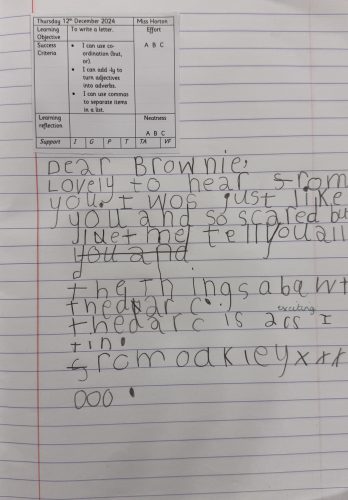 Thursday 12th December 2024 Miss Horton
Learning Objective To write a letter. Effort
Success Criteria • I can use co-ordination (but, or). A B C
• I can add -ly to turn adjectives into adverbs.
• I can use commas to separate items in a list.
Learning reflection Neatness
A B C
Support I G P T TA VF
Dear Brownie,
Lovely to hear srom
you. I wos just like
you and so scared bu
let me tell you all
you and
the things abawt
thedarc.
exciting
thedarc is as I
tin
srom oakley xxx
OOO